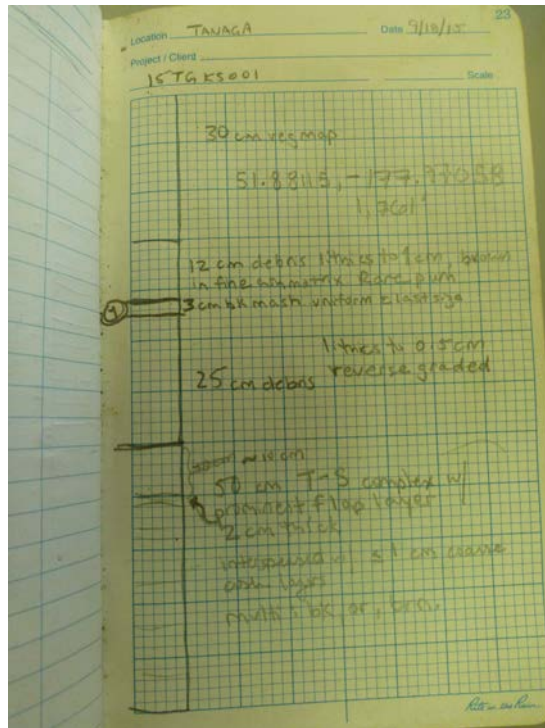 23
Location TANAGA Date 9/18/15
Project / Client
15TGKS001 Scale
30 cm vegmap
51.88115, -177.97058
1,361'
12 cm debris lithics to 1cm, brown
in fine ash matrix Rare pum
① 3 cm bk mash uniform clast size
lithics to 0.5 cm
25 cm debris reverse graded
~10 cm
50 cm T-S complex w/
prominent flap layer
2 cm thick
interspersed w/ ≤ 1 cm coarse
ash layers
multi: bk, or, brn.
Rite in the Rain